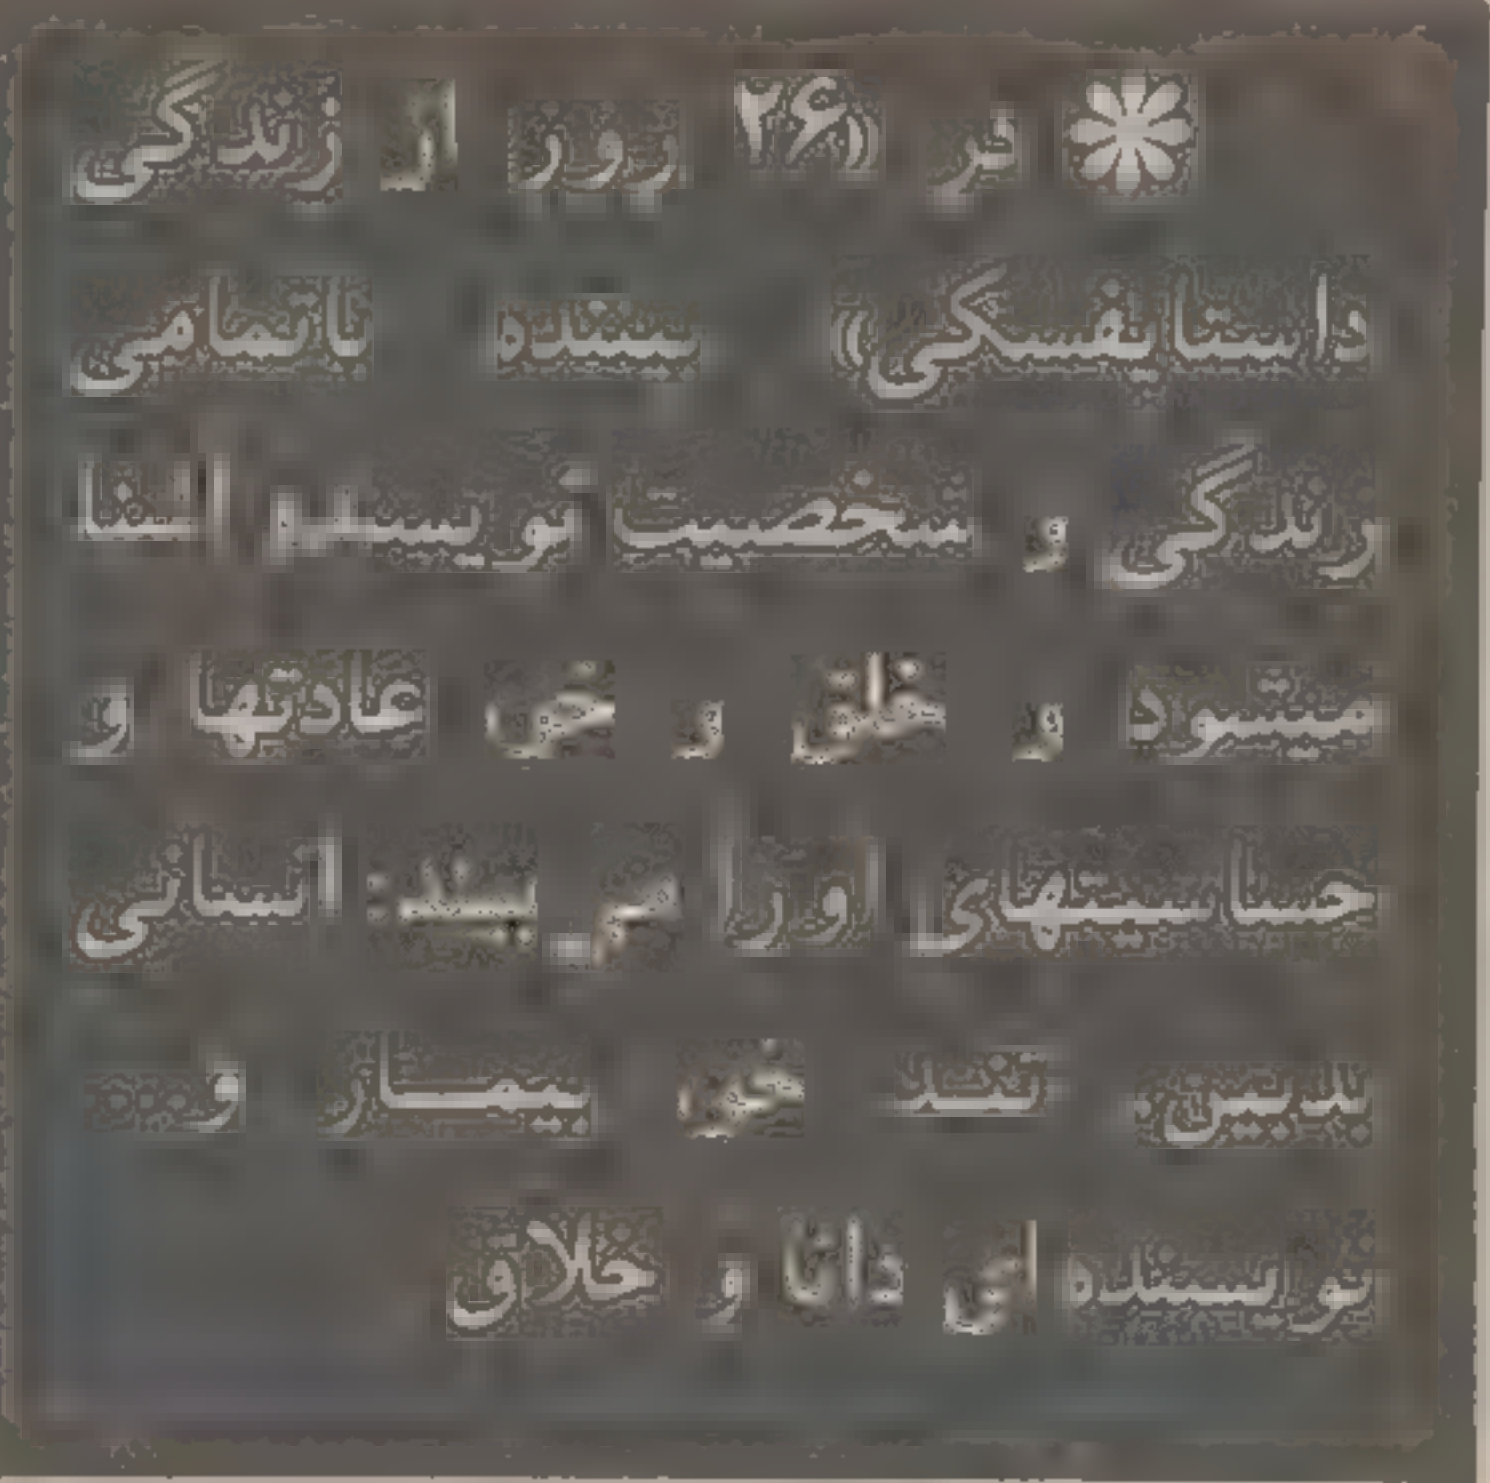 در «۲۶ روز از زندگی
داستایفسکی» بیننده با تمامی
زندگی و شخصیت نویسنده آشنا
میشود و و عادتها و
حساسیتهای او را انسانی
بدبین، تند بیمار و...
نویسنده ای دانا و خلاق